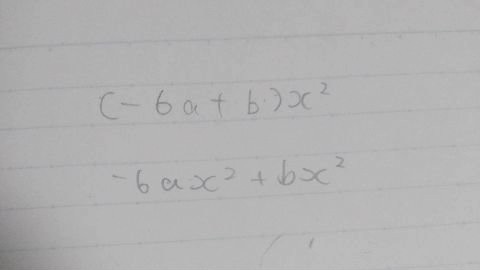 (-6a+b)x²
-6ax²+bx²